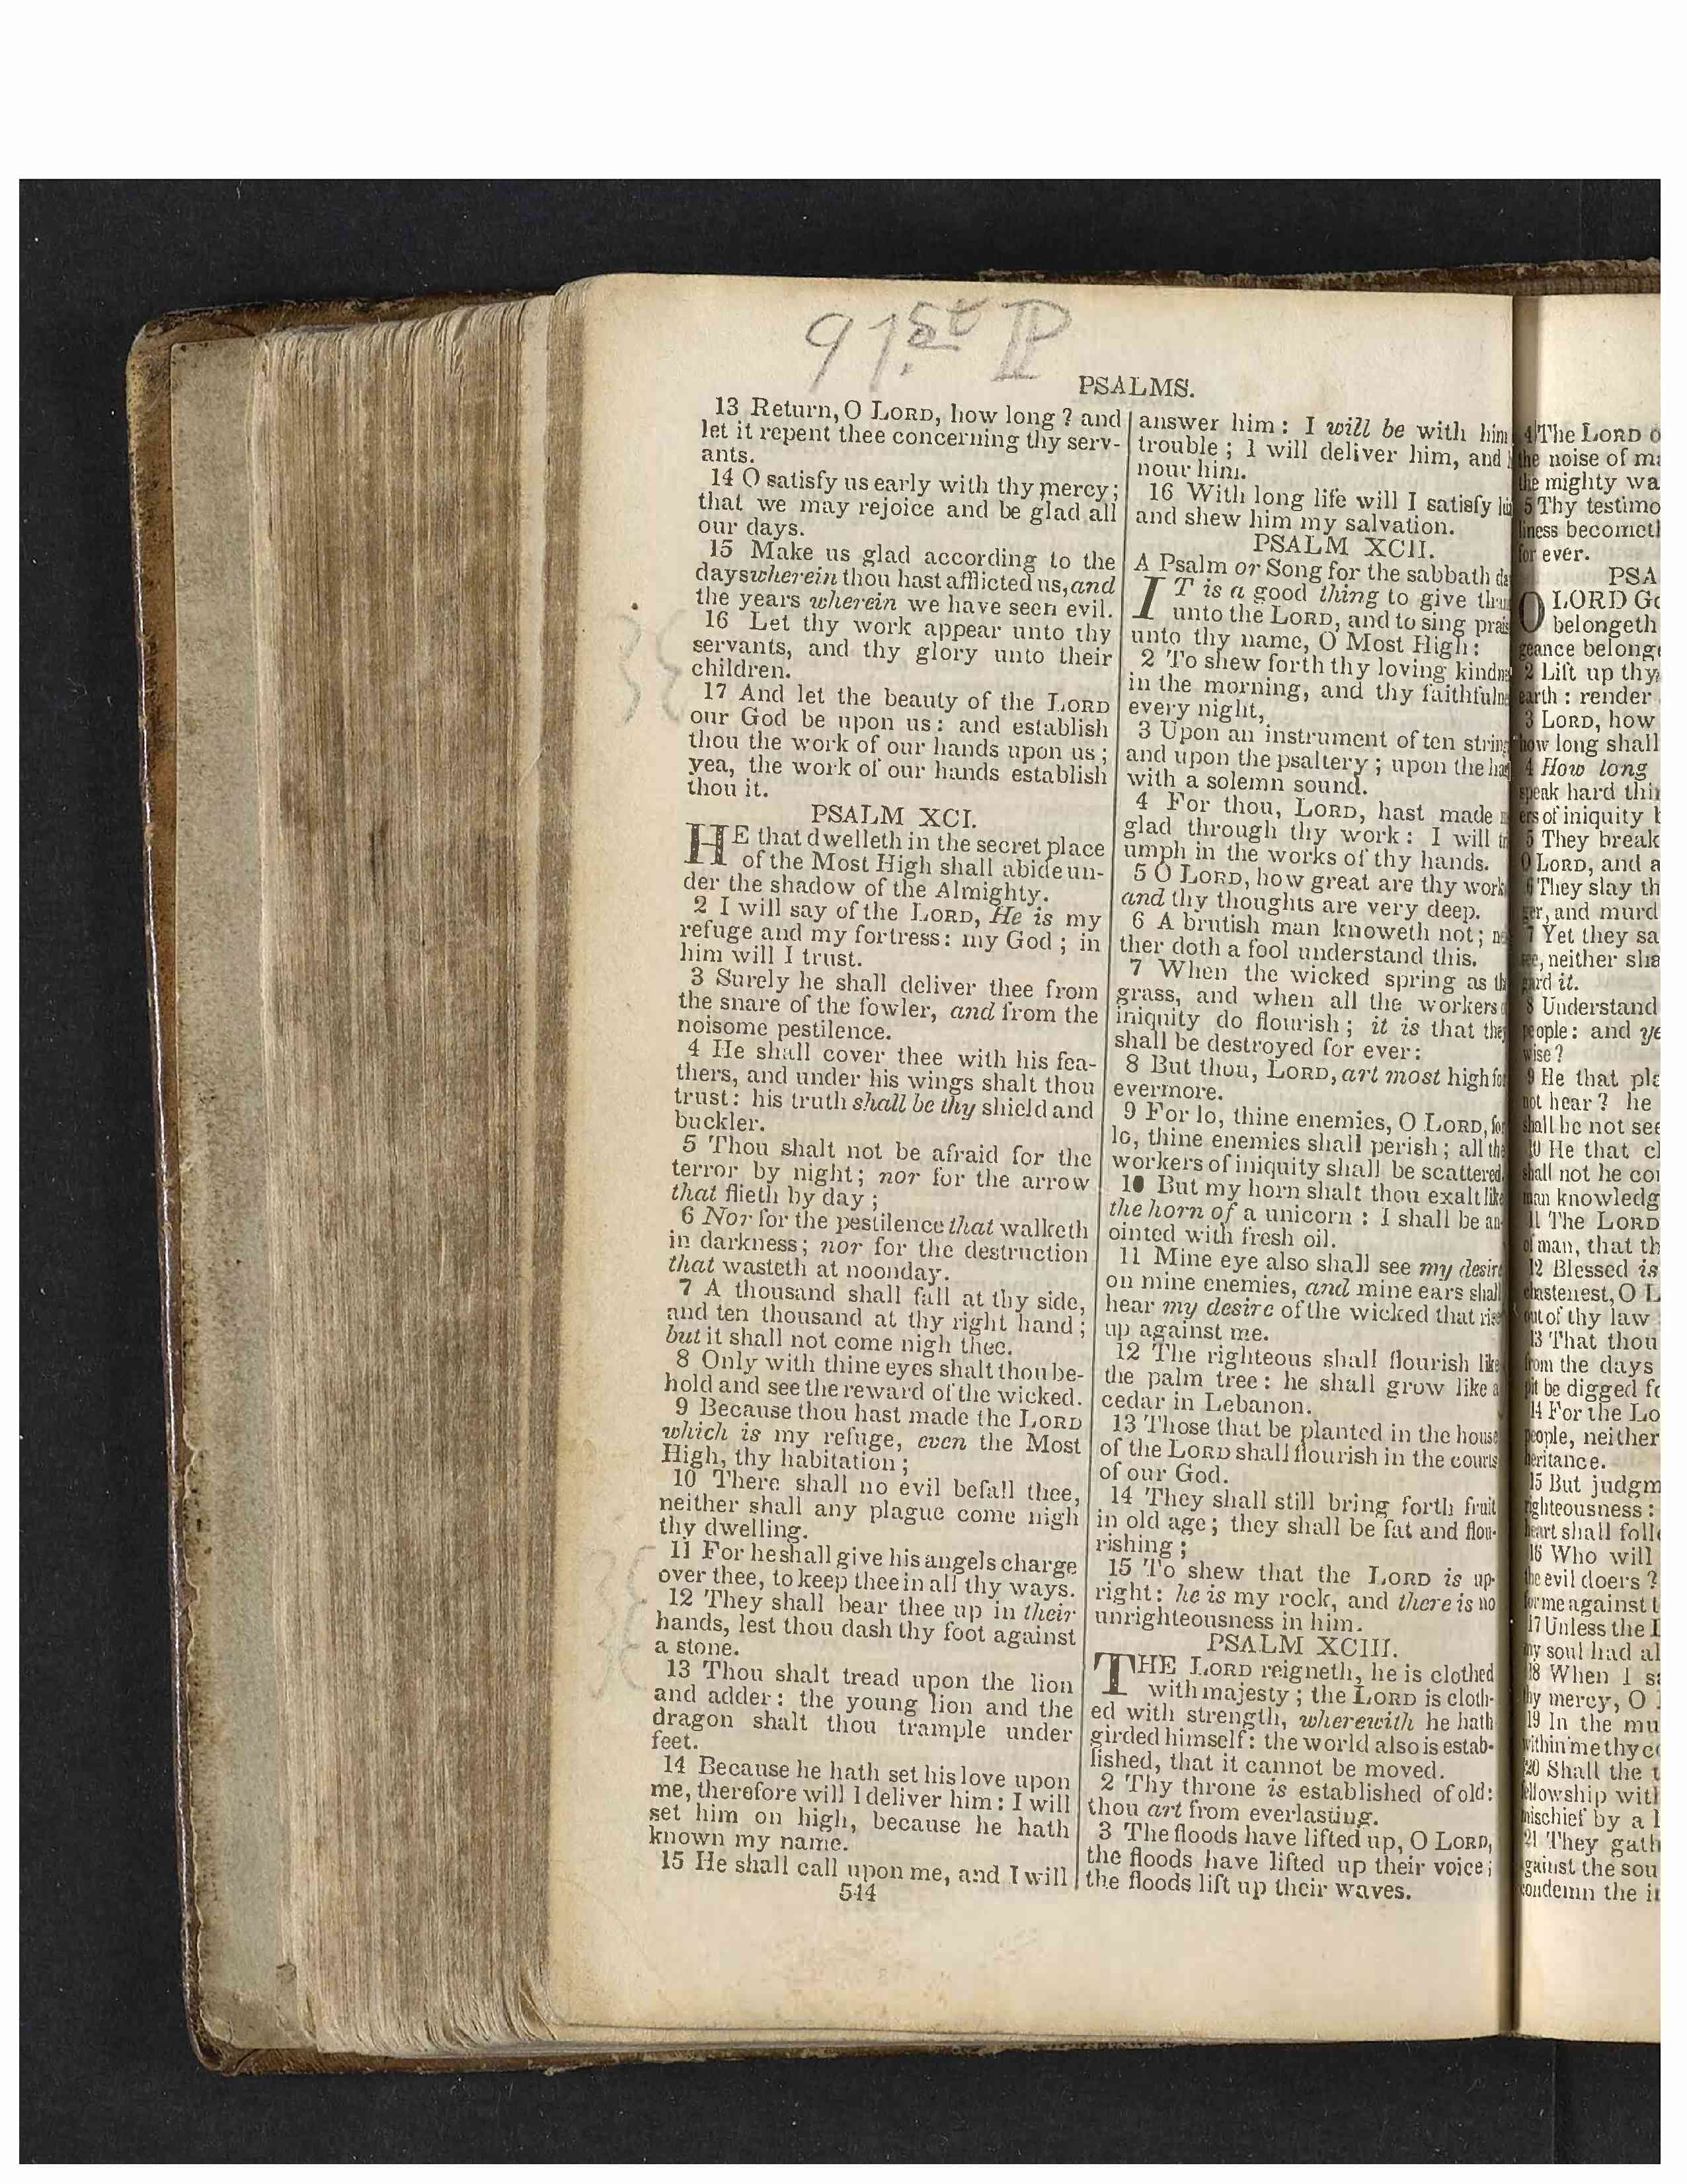 91.st P
PSALMS.
13 Return, O LORD, how long ? and
let it repent thee concerning thy serv-
ants.
14 O satisfy us early with thy mercy;
that we may rejoice and be glad all
our days.
15 Make us glad according to the
days wherein thou hast afflicted us, and
the years wherein we have seen evil.
16 Let thy work appear unto thy
servants, and thy glory unto their
children.
17 And let the beauty of the LORD
our God be upon us: and establish
thou the work of our hands upon us;
yea, the work of our hands establish
thou it.
PSALM XCI.
HE that dwelleth in the secret place
of the Most High shall abide un-
der the shadow of the Almighty.
2 I will say of the LORD, He is my
refuge and my fortress: my God; in
him will I trust.
3 Surely he shall deliver thee from
the snare of the fowler, and from the
noisome pestilence.
4 He shall cover thee with his fea-
thers, and under his wings shalt thou
trust: his truth shall be thy shield and
buckler.
5 Thou shalt not be afraid for the
terror by night; nor for the arrow
that flieth by day;
6 Nor for the pestilence that walketh
in darkness; nor for the destruction
that wasteth at noonday.
7 A thousand shall fall at thy side,
and ten thousand at thy right hand;
but it shall not come nigh thee.
8 Only with thine eyes shalt thou be-
hold and see the reward of the wicked.
9 Because thou hast made the LORD
which is my refuge, even the Most
High, thy habitation;
10 There shall no evil befall thee,
neither shall any plague come nigh
thy dwelling.
11 For he shall give his angels charge
over thee, to keep thee in all thy ways.
12 They shall bear thee up in their
hands, lest thou dash thy foot against
a stone.
13 Thou shalt tread upon the lion
and adder: the young lion and the
dragon shalt thou trample under
feet.
14 Because he hath set his love upon
me, therefore will I deliver him: I will
set him on high, because he hath
known my name.
15 He shall call upon me, and I will
544
answer him: I will be with him
trouble; I will deliver him, and
nour him.
16 With long life will I satisfy
and shew him my salvation.
PSALM XCII.
A Psalm or Song for the sabbath
IT is a good thing to give
unto the LORD, and to sing
unto thy name, O Most High:
2 To shew forth thy loving
in the morning, and thy
every night,
3 Upon an instrument of ten
and upon the psaltery; upon the
with a solemn sound.
4 For thou, LORD, hast made
glad through thy work: I will
umph in the works of thy hands.
5 O LORD, how great are thy
and thy thoughts are very deep.
6 A brutish man knoweth not;
ther doth a fool understand this.
7 When the wicked spring as
grass, and when all the workers
iniquity do flourish; it is that they
shall be destroyed for ever:
8 But thou, LORD, art most high for
evermore.
9 For lo, thine enemies, O LORD, for
lo, thine enemies shall perish; all the
workers of iniquity shall be scattered.
10 But my horn shalt thou exalt like
the horn of a unicorn: I shall be an-
ointed with fresh oil.
11 Mine eye also shall see my desire
on mine enemies, and mine ears shall
hear my desire of the wicked that rise
up against me.
12 The righteous shall flourish like
the palm tree: he shall grow like a
cedar in Lebanon.
13 Those that be planted in the house
of the LORD shall flourish in the courts
of our God.
14 They shall still bring forth fruit
in old age; they shall be fat and flou-
rishing;
15 To shew that the LORD is up-
right: he is my rock, and there is no
unrighteousness in him.
PSALM XCIII.
THE LORD reigneth, he is clothed
with majesty; the LORD is cloth-
ed with strength, wherewith he hath
girded himself: the world also is estab-
lished, that it cannot be moved.
2 Thy throne is established of old:
thou art from everlasting.
3 The floods have lifted up, O LORD,
the floods have lifted up their voice;
the floods lift up their waves.
4 The LORD
the noise of
the mighty
5 Thy
liness
for ever.
PSA
O LORD
belongeth
geance
2 Lift up thy
earth: render
3 LORD, how
how long shall
4 How long
speak hard
ers of iniquity
5 They break
O LORD, and
6 They slay
ger, and
7 Yet they
see, neither
gard it.
8 Understand
people: and
wise?
9 He that
not hear? he
shall he not
10 He that
shall not he
man
11 The LORD
of man, that
12 Blessed is
chastenest, O
out of thy law
13 That thou
from the days
pit be digged
14 For the
people, neither
heritance.
15 But
righteousness:
heart shall
16 Who will
the evil doers?
for me against
17 Unless the
my soul had
18 When I
thy mercy, O
19 In the
within me thy
20 Shall the
fellowship
mischief by a
21 They
against the
condemn the